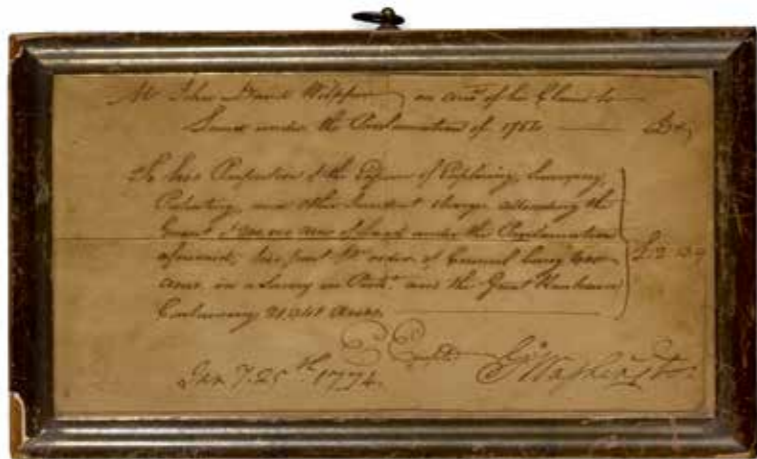 Mr John David Wilpper on acct of his Claim to
Lands under the Proclamation of 1754 — Dr
To his Proportion of the Expence of Exploring, Surveying,
Patenting, and other Incident charges attending the
Grant of 200,000 acres of Land under the Proclamation
aforesaid; his part order of Council being 600
acres, in a Survey in and the Great Kanhawa
Containing 21,941 Acres.
£2.13.9
E Errors Go Washington
Jany 25th 1774.